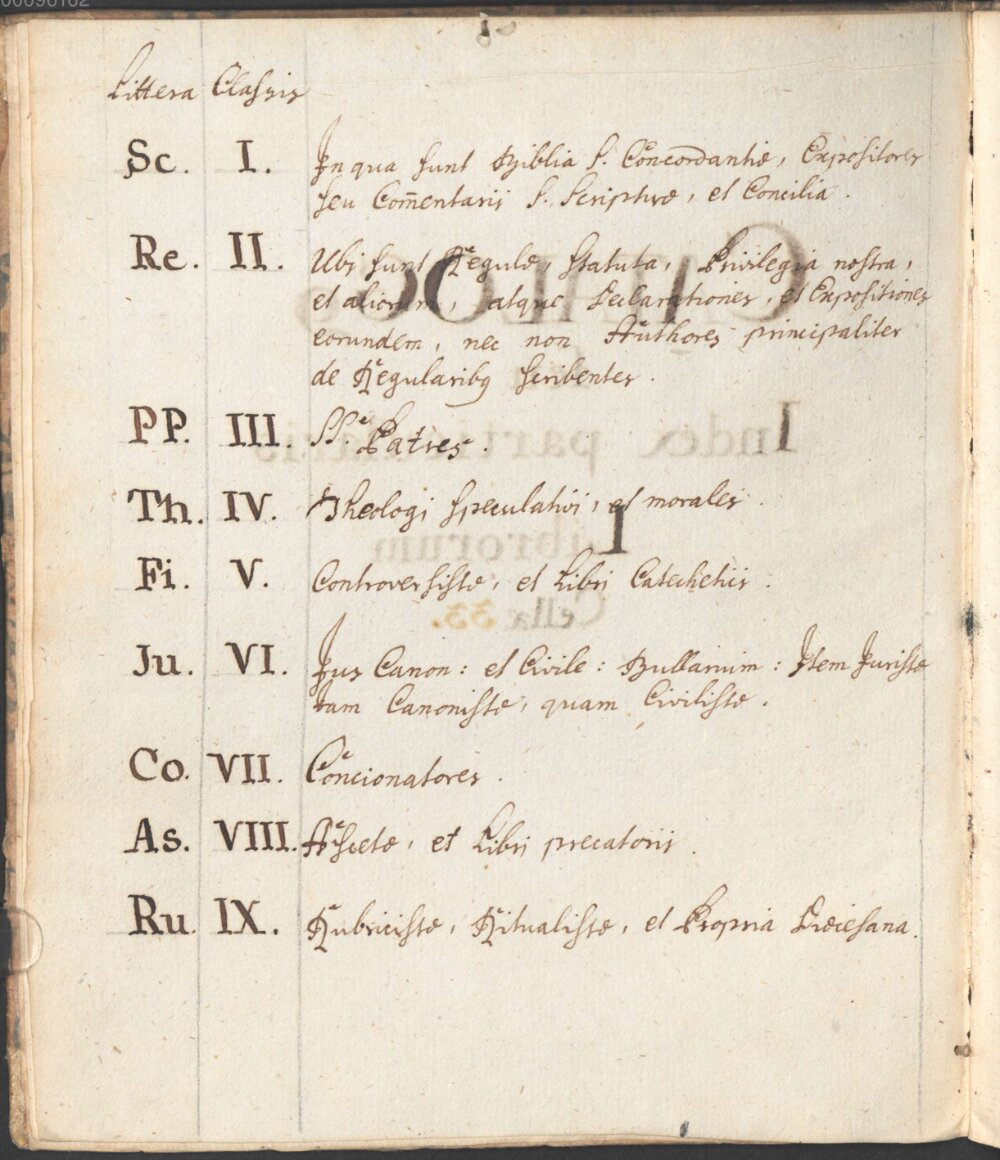 00096162
Littera Classis
Sc. I. In qua sunt Biblia S. Concordantiæ, Expositores
seu Com̄entarii S. Scripturæ, et Concilia.
Re. II. Ubi sunt Regulæ, Statuta, Privilegia nostra,
et aliorum, atque Declarationes, et Expositiones
eorundem, nec non Authores principaliter
de Regularibꝰ scribentes.
PP. III. SS. Patres.
Th. IV. Theologi speculativi, et morales.
Fi. V. Controversistæ, et Libri Catechetici.
Ju. VI. Jus Canon: et Civile: Bullarium: Item Juristæ
tam Canonistæ, quam Civilistæ.
Co. VII. Concionatores.
As. VIII. Ascetæ, et Libri precatorii.
Ru. IX. Rubricistæ, Ritualistæ, et Propria Diœcesana.